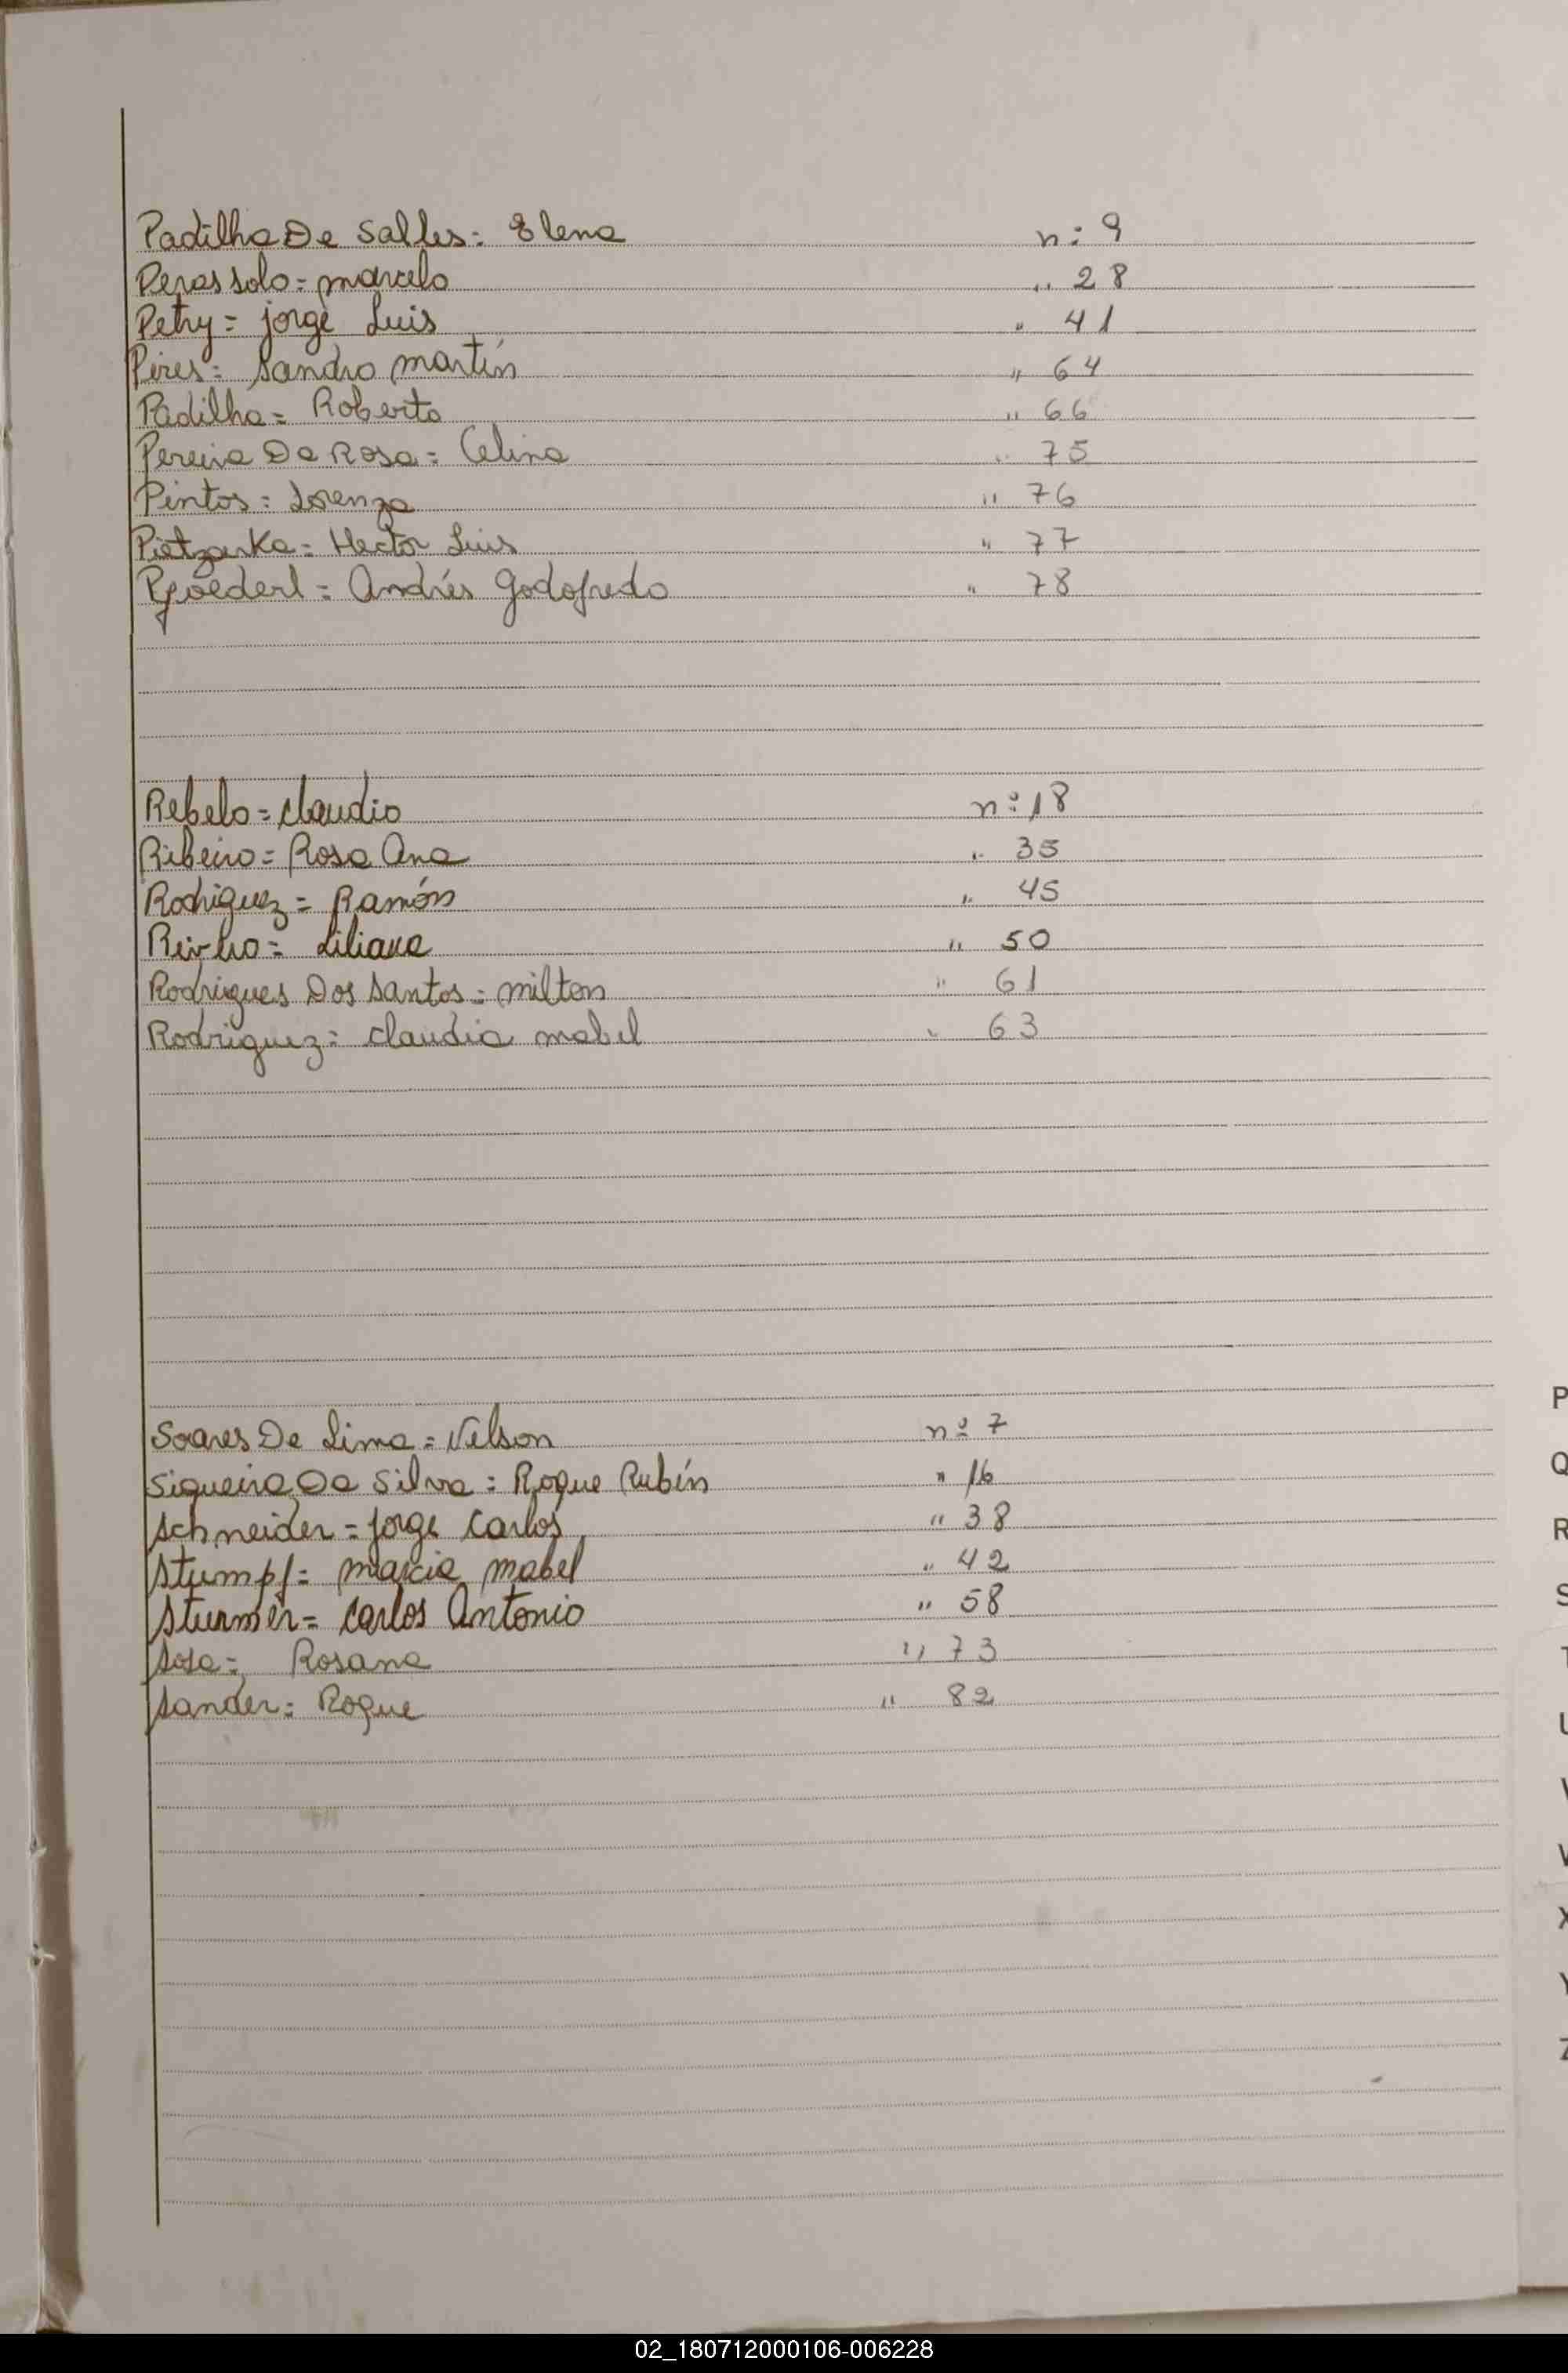 Padilha De Salles = Elena n: 9
Perassolo = marcelo " 28
Petry = jorge Luis " 41
Pires = Sandro martín " 64
Padilha = Roberto " 66
Pereira Da Rosa = Celina " 75
Pintos = Lorenza " 76
Pietzarka = Hector Luis " 77
Andrés Godofredo " 78
Rebelo = claudio n: 18
Ribeiro = Rosa Ana " 35
Rodriguez = Ramón " 45
Liliana " 50
Rodrigues Dos Santos = milton " 61
Rodriguez = claudia mabel " 63
Soares De Lima = Nelson n: 7
Siqueira Da Silva = Roque Rubén " 16
Schneider = jorge Carlos " 38
Stumpf = marcia mabel " 42
Sturmer = Carlos Antonio " 58
Sosa = Rosana " 73
Sander = Roque " 82
P
Q
R
S
T
U
V
W
X
Y
Z
02_180712000106-006228